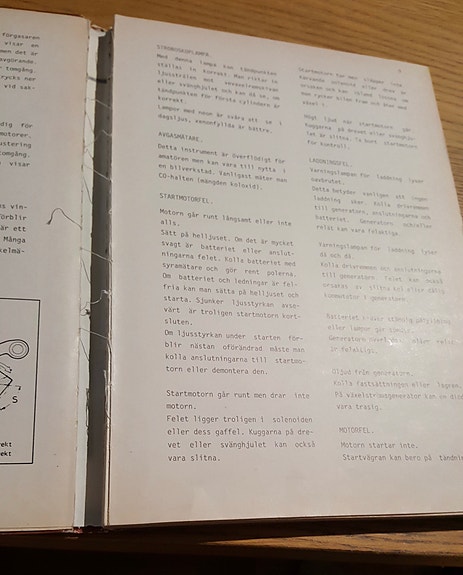 förgasaren
visar en
men det är
avgörande.
tomgång.
trycks ner
vid sak-
dig för
motorer.
ustering
tomgång.
vin-
förblir
är ett
Många
kelmä-
S
ekt
ekt
STROBOSKOPLAMPA.
Med denna lampa kan tändpunkten
ställas in korrekt. Man riktar en
ljusstråle mot
eller svänghjulet och kan då se, om
tändpunkten för första cylindern är
korrekt.
Lampor med neon är svåra att se i
dagsljus, xenonfyllda är bättre.
AVGASMÄTARE.
Detta instrument är överflödigt för
amatören men kan vara till nytta i
en bilverkstad. Vanligast mäter man
CO-halten (mängden koloxid).
STARTMOTORFEL.
Motorn går runt långsamt eller inte
alls.
Sätt på helljuset. Om det är mycket
svagt är batteriet eller anslut-
ningarna felet. Kolla batteriet med
syramätare och gör rent polerna.
Om batteriet och ledningar är fel-
fria kan man sätta på helljuset och
starta. Sjunker ljusstyrkan avse-
värt är troligen startmotorn kort-
sluten.
Om ljusstyrkan under starten för-
blir nästan oförändrad måste man
kolla anslutningarna till startmo-
torn eller demontera den.
Startmotorn går runt men drar inte
motorn.
Felet ligger troligen i solenoiden
eller dess gaffel. Kuggarna på dre-
vet eller svänghjulet kan också
vara slitna.
Startmotorn
eller
växel
Högt ljud när startmotorn går.
Kuggarna på drevet eller
let är slitna. Ta bort startmotorn
för kontroll.
LADDNINGSFEL.
Varningslampan för laddning lyser
oavbrutet.
Detta betyder vanligen att ingen
laddning sker. Kolla drivremmen
till generatorn, anslutningarna och
batteriet. Generatorn och/eller
relät kan vara felaktiga.
Varningslampan för laddning lyser
då och då.
Kolla drivremmen och anslutningarna
till generatorn. Felet kan också
orsakas av slitna kol eller dålig
kommutator i generatorn.
Batteriet kräver ständig påfyllning
eller lampor går sönder.
Generatorn
är felaktigt.
Oljud från generatorn.
Kolla fastsättningen eller lagren.
På växelströmsgenerator kan en diod
vara trasig.
MOTORFEL.
Motorn startar inte.
Startvägran kan bero på tändnin